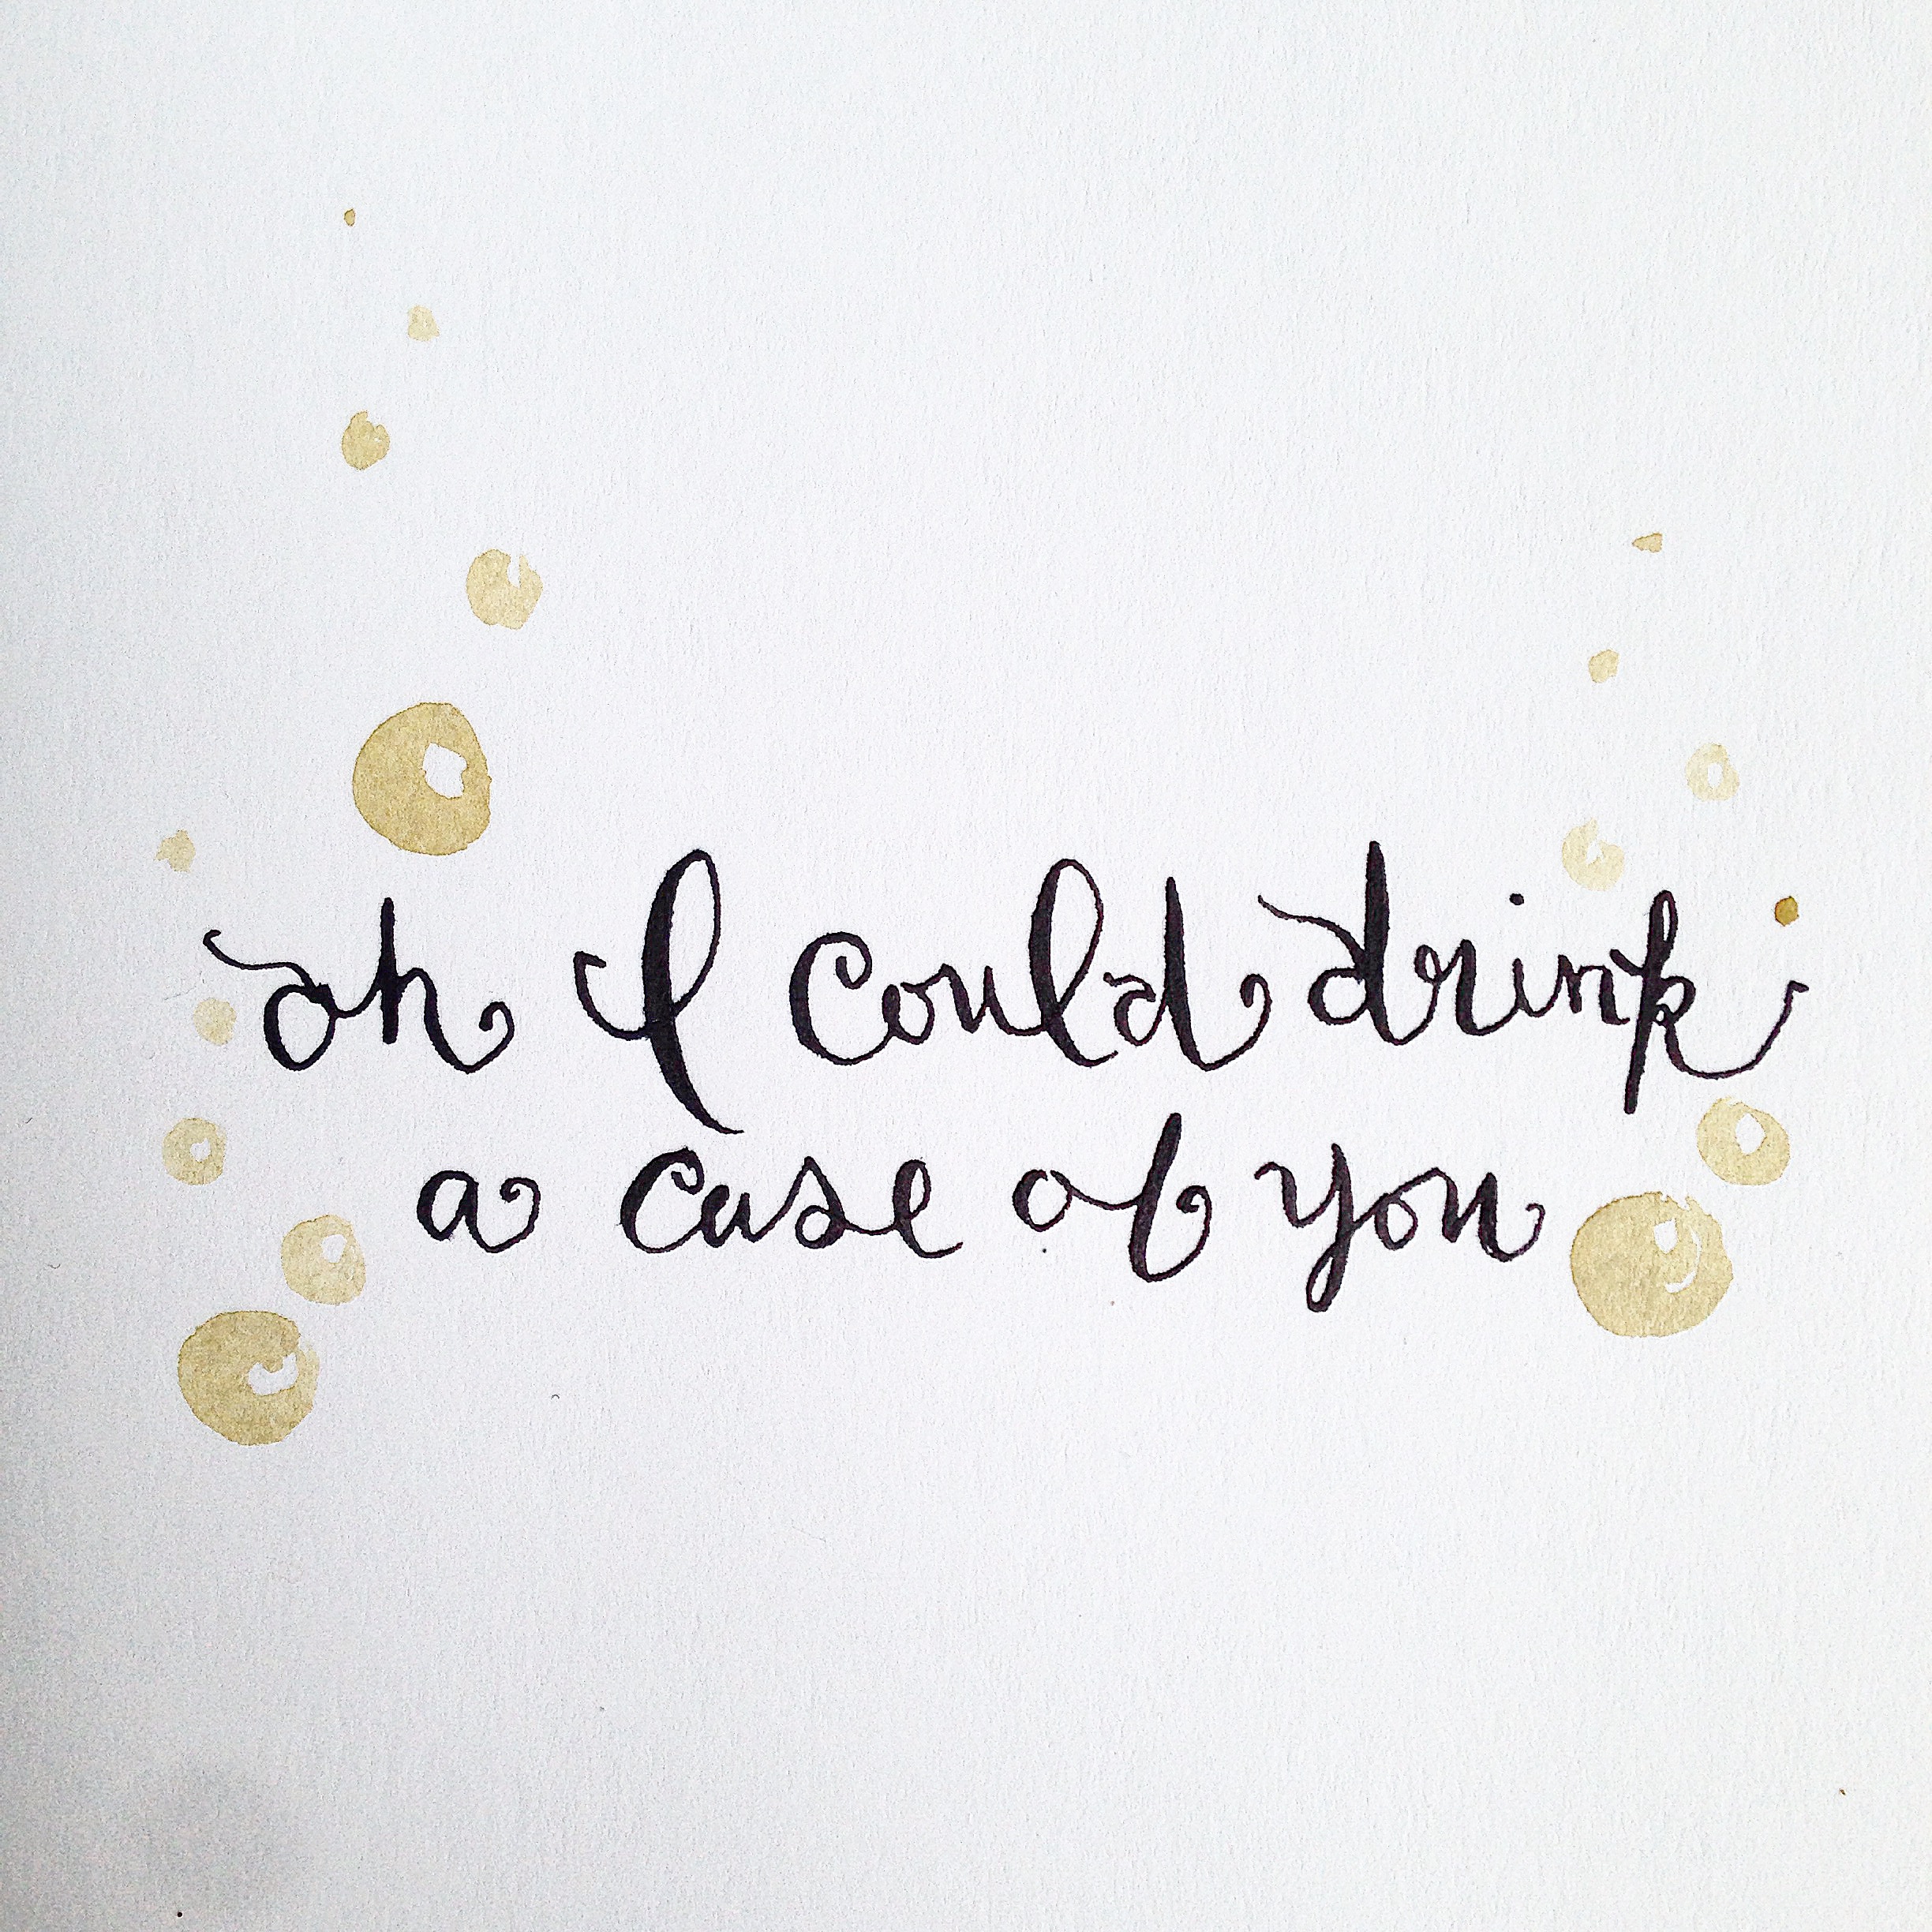 oh I could drink
a case of you